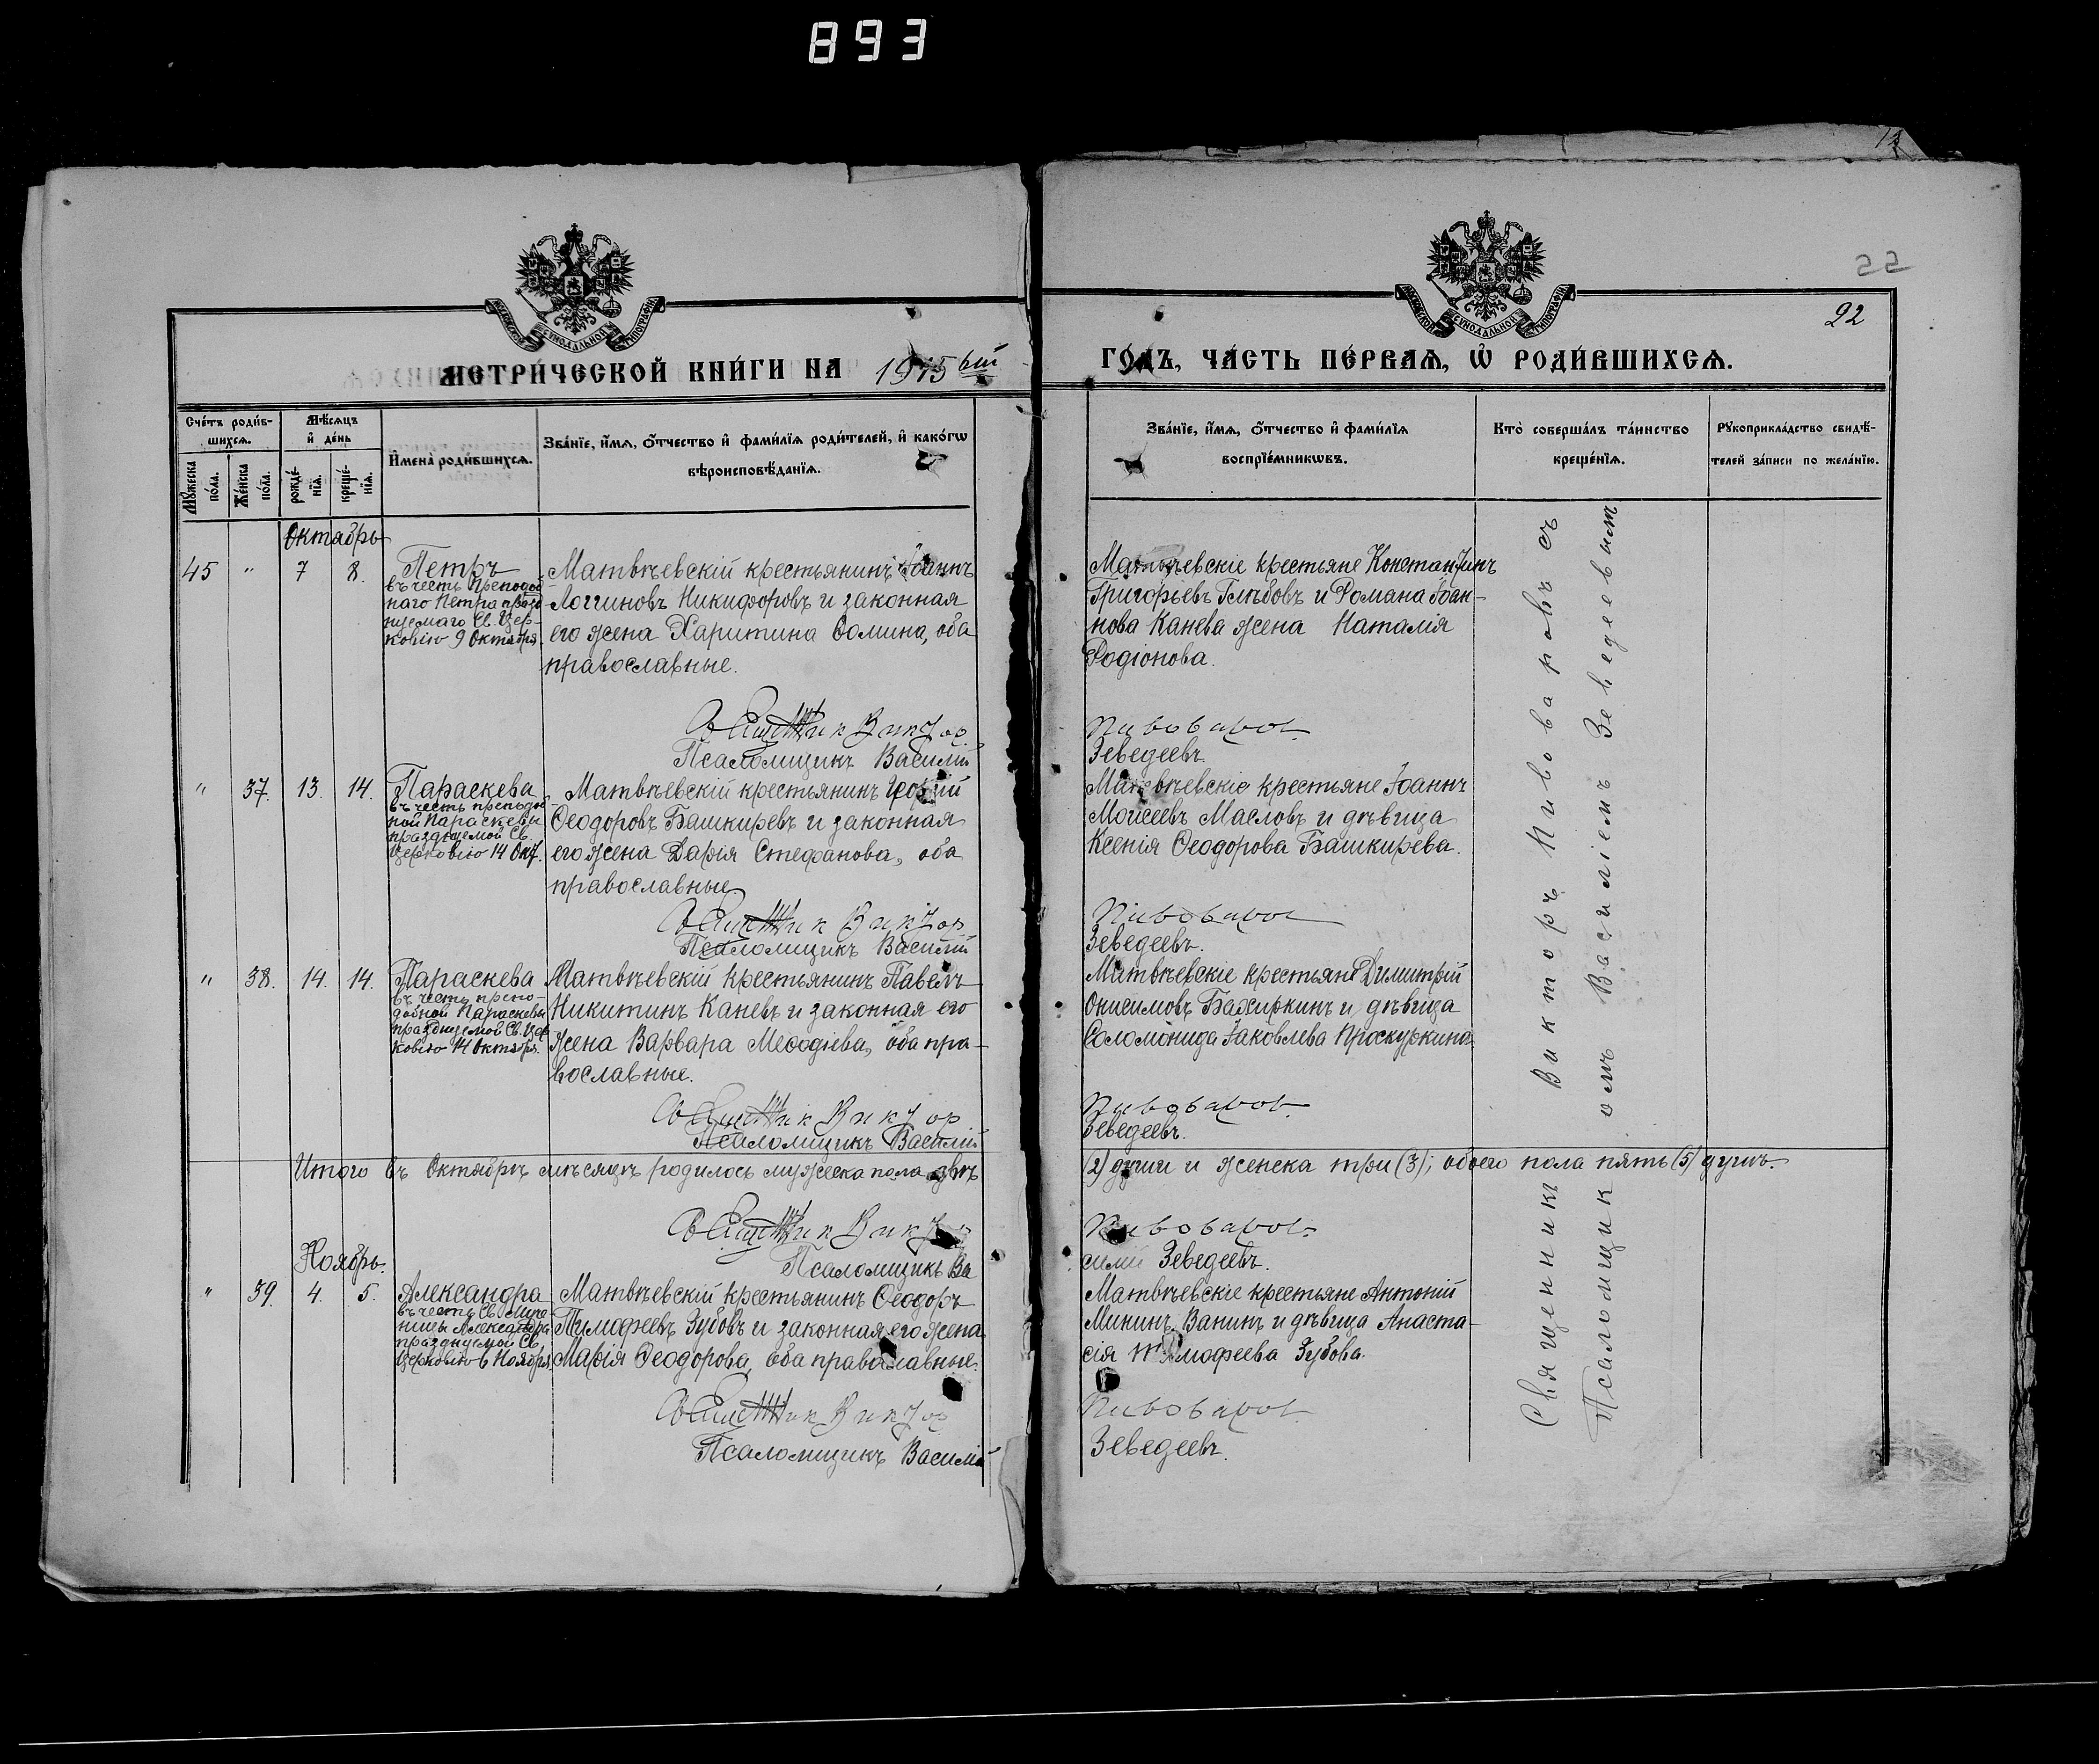 893
22
22
МЕТРИ́ЧЕСКОЙ КНИ́ГИ НА 1915ый
ГО́ДЪ, ЧА́СТЬ ПЕ́РВАѦ, Ѽ РОДИ́ВШИХСѦ.
Сче́тъ роди́в-
шихсѧ.
Мꙋ́жеска
по́ла.
Же́нска
по́ла.
Мѣ́сѧцъ
и҆ де́нь
рожде́-
нїѧ.
креще́-
нїѧ.
И҆мена̀ роди́вшихсѧ.
Зва́нїе, и҆́мѧ, ѻ҆́тчество и҆ фами́лїѧ роди́телей, и҆ како́гѡ
вѣроисповѣ́данїѧ.
Зва́нїе, и҆́мѧ, ѻ҆́тчество и҆ фами́лїѧ
воспрїе́мникѡвъ.
Кто̀ соверша́лъ та́инство
креще́нїѧ.
Рꙋкоприкла́дство свидѣ́-
телей за́писи по жела́нїю.
Октябрь
45 " 7 8.
Петръ
въ честь Преподоб
наго Петра празд
нуемаго Св. Цер-
ковію 9 Октября.
Матвѣевскій крестьянинъ Іоаннъ
Логгиновъ Никифоровъ и законная
его жена Харитина Ѳомина, оба
православные.
Священник Виктор
Псаломщикъ Василій
Матвѣевскіе крестьяне Константинъ
Григорьевъ Глѣбовъ и Романа Іоан-
нова Канева жена Наталія
Родіонова.
Пивоваров
Зеведеевъ.
" 37. 13. 14.
Параскева
въ честь преподоб
ной Параскевы
празднуемой Св.
Церковію 14 Окт.
Матвѣевскій крестьянинъ Георгій
Ѳеодоровъ Башкиревъ и законная
его жена Дарія Стефанова, оба
православные
Священник Виктор
Псаломщикъ Василій
Матвѣевскіе крестьяне Іоаннъ
Моисеевъ Масловъ и дѣвица
Ксенія Ѳеодорова Башкирева.
Пивоваров
Зеведеевъ.
" 38. 14. 14.
Параскева
въ честь препо-
добной Параскевы
празднуемой Св. Цер
ковію 14 Октября.
Матвѣевскій крестьянинъ Павелъ
Никитинъ Каневъ и законная его
жена Варвара Меѳодіева, оба пра-
вославные.
Священник Виктор
Псаломщикъ Василій
Матвѣевскіе крестьяне Димитрій
Онисимовъ Бахиркинъ и дѣвица
Соломонида Іаковлева Проскуркина.
Пивоваров
Зеведеевъ.
Итого въ Октябрѣ мѣсяцѣ родилось мужеска пола двѣ
(2) души и женска три (3); обоего пола пять (5) душъ.
Священник Виктор
Псаломщикъ Ва
Пивоваров
силій Зеведеевъ.
Ноябрь.
" 39. 4. 5.
Александра
въ честь Св. Муче-
ницы Александры
празднуемой Св.
Церковію 6 Ноября
Матвѣевскій крестьянинъ Ѳеодоръ
Тимофеевъ Зубовъ и законная его жена
Марія Ѳеодорова, оба православные.
Священник Виктор
Псаломщикъ Василій
Матвѣевскіе крестьяне Антоній
Мининъ Ванинъ и дѣвица Анаста-
сія Тимофеева Зубова.
Пивоваров
Зеведеевъ.
Священникъ Викторъ Пивоваровъ съ
Псаломщикомъ Василіемъ Зеведеевымъ